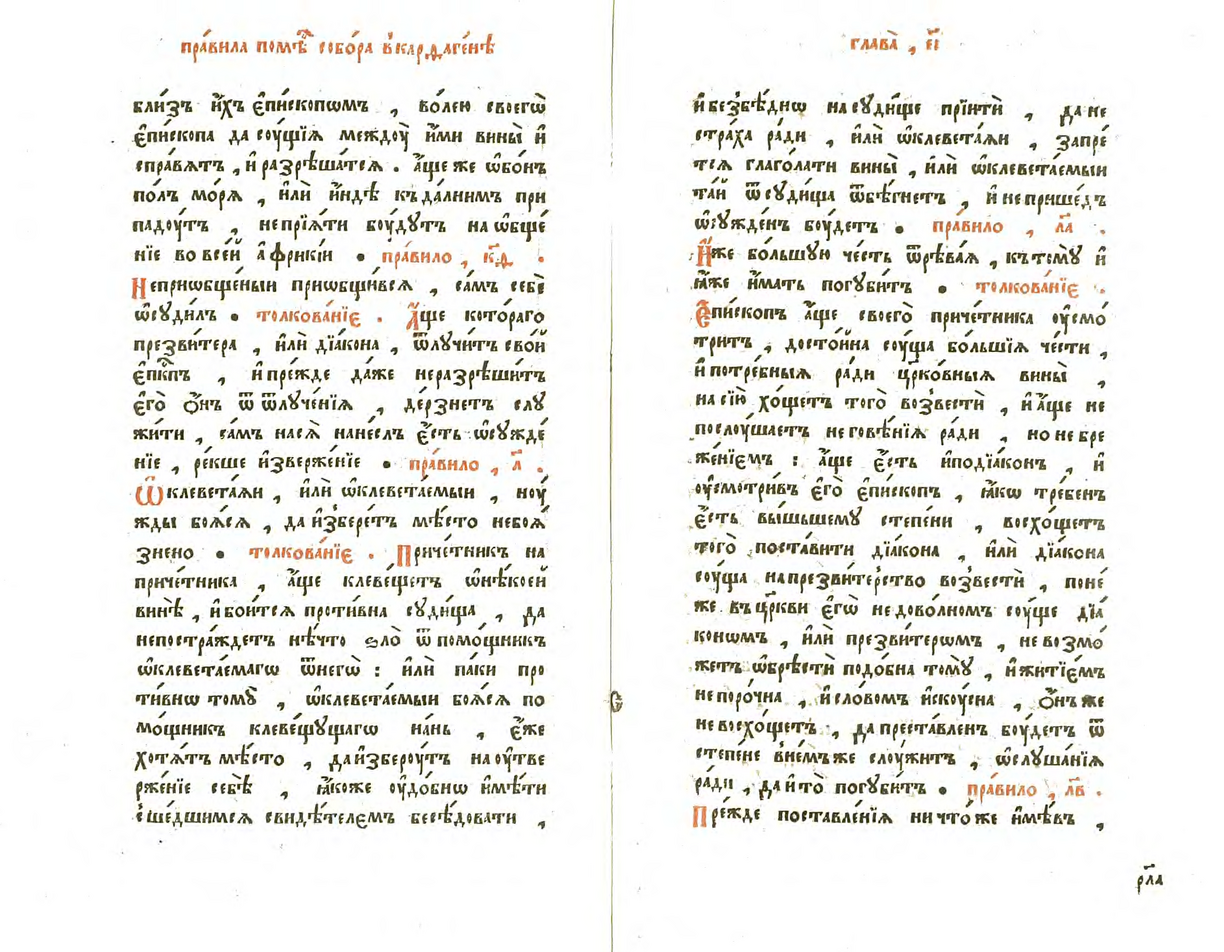 пра́вила поме́ собо́ра в̾карѳаге́нѣ
бли́зъ и҆́хъ є҆пи́скопѡмъ , во́лею своегѡ̀
є҆пи́скопа да сѹ́щїѧ междѹ̀ и҆́ми вины̀ и҆
спра́вѧтъ , и҆ разрѣша́тсѧ . а҆́ще же ѡ҆бо́нъ
по́лъ мо́рѧ , и҆лѝ и҆́ндѣ къда́лнимъ при
падѹ́тъ , непрїѧ́ти бѹ́дꙋтъ на ѡ҆бще́
нїе во все́й а҆фрикі́и • пра́вило , к҃ѳ .
Неприѡбще́ныи приѡбщи́всѧ , са́мъ себѐ
ѡ҆сꙋди́лъ • толкова́нїє . А҆́ще кото́раго
презви́тера , и҆лѝ дїа́кона , ѿлꙋчи́тъ сво́й
є҆пкпъ , и҆ пре́жде да́же неразрѣши́тъ
є҆го̀ ѻ҆́нъ ѿ ѿлꙋче́нїѧ , де́рзнетъ слꙋ
жи́ти , са́мъ насѧ̀ нане́слъ є҆́сть ѡ҆сꙋжде́
нїе , ре́кше и҆зверже́нїе • пра́вило , л҃ .
Ѡ҆клевета́ѧи , и҆лѝ ѡ҆клевета́емыи , нѹ́
жды боѧ́сѧ , да и҆збере́тъ мѣ́сто небоѧ́
знено • толкова́нїє . Приче́тникъ на
приче́тника , а҆́ще клеве́щетъ ѡ҆нѣ́коей
винѣ̀ , и҆ бои́тсѧ проти́вна сꙋди́ща , да
непостра́ждетъ нѣ́что ѕло̀ ѿ помо́щникъ
ѡ҆клевета́емагѡ ѿнегѡ̀ : и҆лѝ па́ки про
ти́внѡ томꙋ̀ , ѡ҆клевета́емыи боѧ́сѧ по
мо́щникъ клеве́щꙋщагѡ на́нь , є҆́же
хотѧ́тъ мѣ́сто , да и҆зберѹ́тъ на ѹ҆тве
рже́нїе себѣ̀ , ꙗ҆́коже ѹ҆до́бнѡ и҆мѣ́ти
сше́дшимсѧ свидѣ́телємъ бесѣ́довати ,
глава̀ , є҃і
и҆ безбѣ́днѡ насꙋди́ще прїитѝ , да не
стра́ха ра́ди , и҆лѝ ѡ҆клевета́ѧи , запре́
тсѧ глаго́лати вины̀ , и҆лѝ ѡ҆клевета́емыи
та́й ѿ сꙋди́ща ѿбѣ́гнетъ , и҆ не прише́дъ
ѡ҆сꙋжде́нъ бѹ́детъ • пра́вило , л҃а .
И҆́же бо́льшꙋю че́сть ѿрѣва́ѧ , къ томꙋ̀ и҆
ꙗ҆́же и҆́мать погꙋби́тъ • толкова́нїє .
Є҆пи́скопъ а҆́ще своего̀ приче́тника ѹ҆смо́
тритъ , досто́йна сѹ́ща бо́льшїѧ че́сти ,
и҆ потре́бныѧ ра́ди цр҃ко́вныѧ вины̀ ,
на сїю̀ хо́щетъ того̀ возвестѝ , и҆ а҆́ще не
послѹ́шаетъ не говѣ́нїѧ ра́ди , но небре
же́нїємъ : а҆́ще є҆́сть и҆подїа́конъ , и҆
ѹ҆смотри́въ є҆го̀ є҆пи́скопъ , ꙗ҆́кѡ тре́бенъ
є҆́сть вы́шьшемꙋ степе́ни , восхо́щетъ
того̀ поста́вити дїа́кона , и҆лѝ дїа́кона
сѹ́ща на презви́терство возвестѝ , поне́
же въ цр҃кви є҆гѡ̀ недово́лномъ сѹ́ще дїа́
конѡмъ , и҆лѝ презви́терѡмъ , не возмо́
жетъ ѡ҆брѣстѝ подо́бна томꙋ̀ , и҆ житїє́мъ
непоро́чна , и҆ сло́вомъ и҆скѹ́сна , ѻ҆́нъ же
не восхо́щетъ , да преста́вленъ бѹ́детъ ѿ
степе́не в̾не́мъже слѹ́житъ , ѡ҆слꙋша́нїѧ
ра́ди , да и҆ то̀ погꙋби́тъ • пра́вило , л҃в .
Пре́жде поставле́нїѧ ничто́же и҆мѣ́въ ,
рл҃а